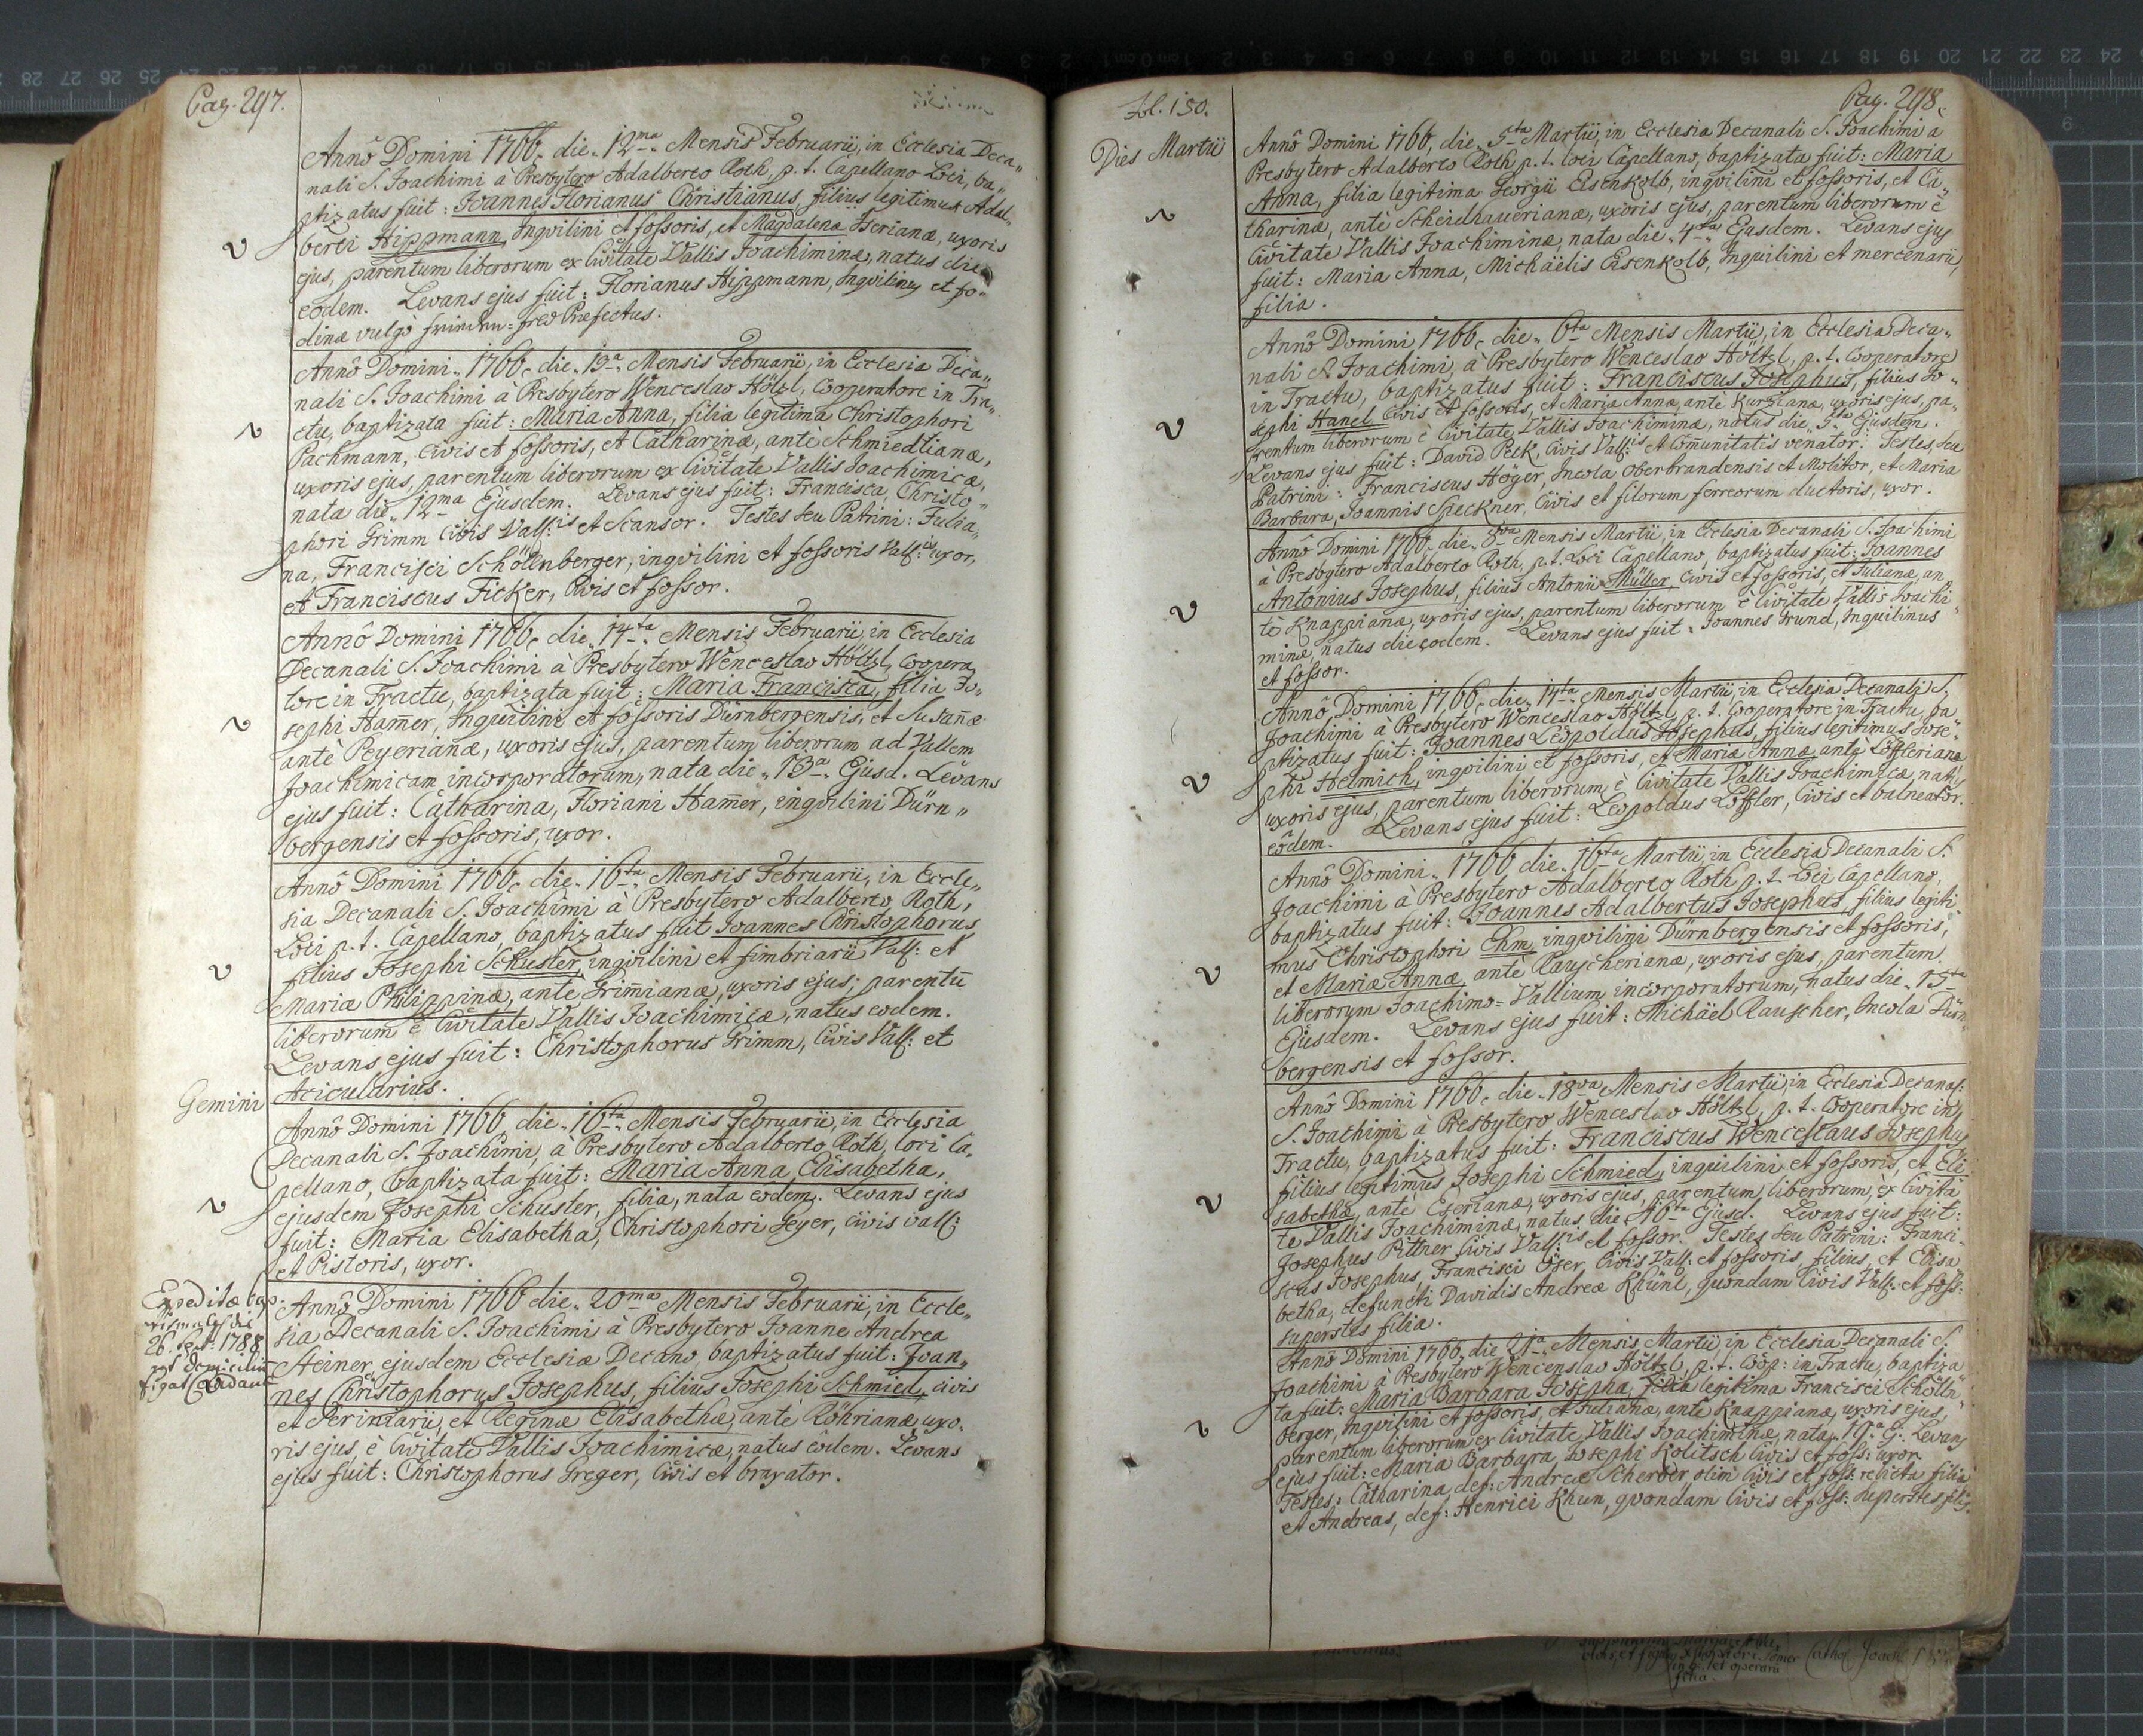 Pag. 297.
Annô Domini 1766, die 12ma Mensis Februarii, in Ecclesia Deca„
nali S. Joachimi à Presbytero Adalberto Roth, p. t. Capellano Loci, ba„
ptizatus fuit: Joannes Florianus Christianus, filius legitimus Adal„
berti Hippmann, Inqvilini et fossoris, et Magdalenæ, uxoris
ejus, parentum liberorum ex Civitate Vallis Joachiminæ, natus die
eodem. Levans ejus fuit: Florianus Hippmann, Inqvilinus et fo„
dinæ vulgò Præfectus.
Annô Domini 1766, die 13a Mensis Februarii, in Ecclesia Deca„
nali S. Joachimi à Presbytero Wenceslao Höltzl, Cooperatore in Tra„
ctu, baptizata fuit: Maria Anna, filia legitima Christophori
Pachmann, Civis et fossoris, et Catharinæ, antè Schmiedtianæ,
uxoris ejus, parentum liberorum ex Civitate Vallis Joachimicæ,
nata die 12ma Ejusdem. Levans ejus fuit: Francisca, Christo„
phori Grimm Civis Vall:is et Scansor. Testes seu Patrini: Julia„
na, Francisci Schöllnberger, inqvilini et fossoris Vall:is uxor,
et Franciscus Ficker, Civis et fossor.
Annô Domini 1766, die 14ta Mensis Februarii, in Ecclesia
Decanali S. Joachimi à Presbytero Wenceslao Höltzl, Coopera„
tore in Tractu, baptizata fuit: Maria Francisca, filia Jo„
sephi Ham̄er, Inquilini et fossoris Dürnbergensis, et Susan̄æ
antè Peyerianæ, uxoris ejus, parentum liberorum ad Vallem
Joachimicam incorporatorum, nata die 13a Ejusd. Levans
ejus fuit: Catharina, Floriani Ham̄er, inqvilini Dürn„
bergensis et fossoris, uxor.
Annô Domini 1766, die 16ta Mensis Februarii, in Eccle„
sia Decanali S. Joachimi à Presbytero Adalberto Roth,
Loci p. t. Capellano, baptizatus fuit Joannes Christophorus
filius Josephi Schuster, inqvilini et fimbriarii Vall: et
Mariæ Philippinæ, ante Grim̄ianæ, uxoris ejus, parentū
liberorum è Civitate Vallis Joachimicæ, natus eodem.
Levans ejus fuit: Christophorus Grimm, Civis Vall: et
Acicularius.
Gemini
Annô Domini 1766, die 16ta Mensis Februarii, in Ecclesia
Decanali S. Joachimi, à Presbytero Adalberto Roth, loci Ca„
pellano, baptizata fuit: Maria Anna Elisabetha,
ejusdem Josephi Schuster, filia, nata eodem. Levans ejus
fuit: Maria Elisabetha, Christophori Geyer, civis Vall:
et Pistoris, uxor.
Expeditæ bap„
tismales die
26. Sept: 1788
domicilium
figat
Annô Domini 1766 die 20ma Mensis Februarii, in Eccle„
sia Decanali S. Joachimi à Presbytero Joanne Andrea
Steiner, ejusdem Ecclesiæ Decano, baptizatus fuit: Joan„
nes Christophorus Josephus, filius Josephi Schmied, civis
et Serintarii, et Reginæ Elisabethæ, antè Röhrianæ, uxo„
ris ejus, è Civitate Vallis Joachimicæ, natus eôdem. Levans
ejus fuit: Christophorus Greger, Civis et braxator.
fol. 150.
Pag. 298.
Dies Martii
Annô Domini 1766, die 5ta Martii, in Ecclesia Decanali S. Joachimi à
Presbytero Adalberto Roth p. t. loci Capellano, baptizata fuit: Maria
Anna, filia legitima Georgii Eisenkolb, inqvilini et fossoris, et Ca„
tharinæ, antè Scheidhauerianæ, uxoris ejus, parentum liberorum è
Civitate Vallis Joachiminæ, nata die 4ta Ejusdem. Levans ejus
fuit: Maria Anna, Michäelis Eisenkolb, Inquilini et mercenarii,
filia.
Annô Domini 1766, die 6ta Mensis Martii, in Ecclesia Deca„
nali S. Joachimi, à Presbytero Wenceslao Höltzl, p. t. Cooperatore
in Tractu, baptizatus fuit: Franciscus Josephus, filius Jo„
sephi Hanel Civis et fossoris, et Mariæ Annæ, antè Kurzianæ, uxoris ejus, pa„
rentum liberorum è Civitate Vallis Joachiminæ, natus die 5ta Ejusdem.
Levans ejus fuit: David Peck, Civis Vall:is et Com̄unitatis venator. Testes, seu
Patrini: Franciscus Höger, Incola Oberbrandensis et Molitor, et Maria
Barbara, Joannis Speckner, Civis et filorum ferreorum ductoris, uxor.
Annô Domini 1766, die 8va Mensis Martii, in Ecclesia Decanali S. Joachimi
à Presbytero Adalberto Roth, p. t. Loci Capellano, baptizatus fuit: Joannes
Antonius Josephus, filius Antonii Müller, Civis et fossoris, et Julianæ, an„
tè Knappianæ, uxoris ejus, parentum liberorum è Civitate Vallis Joachi„
minæ, natus die eodem. Levans ejus fuit: Joannes Grund, Inquilinus
et fossor.
Annô Domini 1766, die 14ta Mensis Martii, in Ecclesia Decanali S.
Joachimi à Presbytero Wenceslao Höltzl, p. t. Cooperatore in Tractu, ba„
ptizatus fuit: Joannes Leopoldus Josephus, filius legitimus Jose„
phi Helmich, inqvilini et fossoris, et Mariæ Annæ, antè Löfflerianæ
uxoris ejus, parentum liberorum è Civitate Vallis Joachimicæ, nat9
eôdem. Levans ejus fuit: Leopoldus Löffler, Civis et balneator.
Annô Domini 1766 die 16ta Martii, in Ecclesia Decanali S.
Joachimi à Presbytero Adalberto Roth p. t. Loci Capellano,
baptizatus fuit: Joannes Adalbertus Josephus, filius legiti„
mus Christophori Ehm, inqvilini Dürnbergensis et fossoris,
et Mariæ Annæ, antè Rauscherianæ, uxoris ejus, parentum
liberorum Joachimo=Vallium incorporatorum, natus die 15ta
Ejusdem. Levans ejus fuit: Michäel Rauscher, Incola Dürn„
bergensis et fossor.
Annô Domini 1766, die 18va Mensis Martii, in Ecclesia Decanal:
S. Joachimi à Presbytero Wenceslao Höltzl, p. t. Cooperatore in
Tractu, baptizatus fuit: Franciscus Wenceslaus Josephus
filius legitimus Josephi Schmied, inquilini et fossoris, et Eli„
sabethæ, antè Eserianæ, uxoris ejus, parentum liberorum, èx Civita„
te Vallis Joachiminæ, natus die 16ta Ejusd. Levans ejus fuit:
Josephus Pittner Civis Vall:is et fossor. Testes seu Patrini: Franci„
scus Josephus, Francisci Öser, Civis Vall: et fossoris, filius, et Elisa„
betha, defuncti Davidis Andreæ Khünl, quondam Civis Vall: et foss:
superstes filia.
Annô Domini 1766, die 21a Mensis Martii, in Ecclesia Decanali S.
Joachimi à Presbytero Wencenslao Höltzl, p. t. Coop: in Tractu, baptiza„
ta fuit: Maria Barbara Josepha, filia legitima Francisci Schölln„
berger, Inqvilini et fossoris, et Julianæ, antè Knappianæ, uxoris ejus,
parentum liberorum ex Civitate Vallis Joachiminæ, nata 19a Ej. Levans
ejus fuit: Maria Barbara, Josephi Kolitsch Civis et foss: uxor.
Testes: Catharina, def: Andreæ Scherber, olim Civis et foss: relicta filia
et Andreas, def: Henrici Khun, qvondam Civis et foss: superstes fili9.